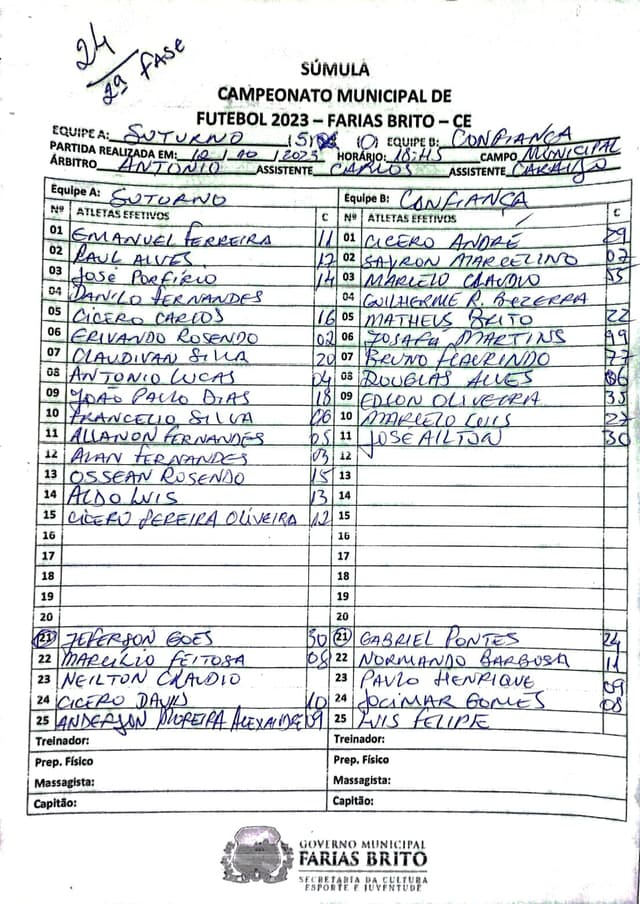 24
2ª FASE
SÚMULA
CAMPEONATO MUNICIPAL DE
FUTEBOL 2023 – FARIAS BRITO – CE
EQUIPE A: SUTURNO (5) X (0) EQUIPE B: CONFIANÇA
PARTIDA REALIZADA EM: 12/10/2023 HORÁRIO: 18:45 CAMPO MUNICIPAL
ÁRBITRO ANTONIO ASSISTENTE CARLOS ASSISTENTE
Equipe A: SUTURNO Equipe B: CONFIANÇA
Nº ATLETAS EFETIVOS C Nº ATLETAS EFETIVOS C
01 EMANUEL FERREIRA 11 01 CICERO ANDRÉ 29
02 RAUL ALVES 17 02 SAYRON MARCELINO 07
03 JOSÉ PORFÍRIO 14 03 MARCELO CLAUDIO 55
04 DANILO FERNANDES 04 GUILHERME R. BEZERRA
05 CICERO CARLOS 16 05 MATHEUS BRITO 22
06 ERIVANDO ROSENDO 02 06 JOSAFÁ MARTINS 99
07 CLAUDIVAN SILVA 20 07 BRUNO FLAURINDO 77
08 ANTONIO LUCAS 04 08 DOUGLAS ALVES 06
09 JOÃO PAULO DIAS 18 09 EDLON OLIVEIRA 35
10 FRANCELIO SILVA 06 10 MARCELO LUIS 27
11 ALLANON FERNANDES 05 11 JOSÉ AILTON 30
12 ALAN FERNANDES 03 12
13 OSSEAN ROSENDO 15 13
14 ALDO LUIS 13 14
15 CICERO PEREIRA OLIVEIRA 12 15
16 16
17 17
18 18
19 19
20 20
21 JEFERSON GOES 30 21 GABRIEL PONTES 24
22 MARCÍLIO FEITOSA 08 22 NORMANDO BARBOSA 11
23 NEILTON CLAUDIO 23 PAULO HENRIQUE 09
24 CICERO DAVIS 10 24 JOCIMAR GOMES 08
25 ANDERSON MOREIRA ALEXANDRE 09 25 LUIS FELIPE
Treinador: Treinador:
Prep. Físico Prep. Físico
Massagista: Massagista:
Capitão: Capitão:
GOVERNO MUNICIPAL
FARIAS BRITO
SECRETARIA DA CULTURA
ESPORTE E JUVENTUDE